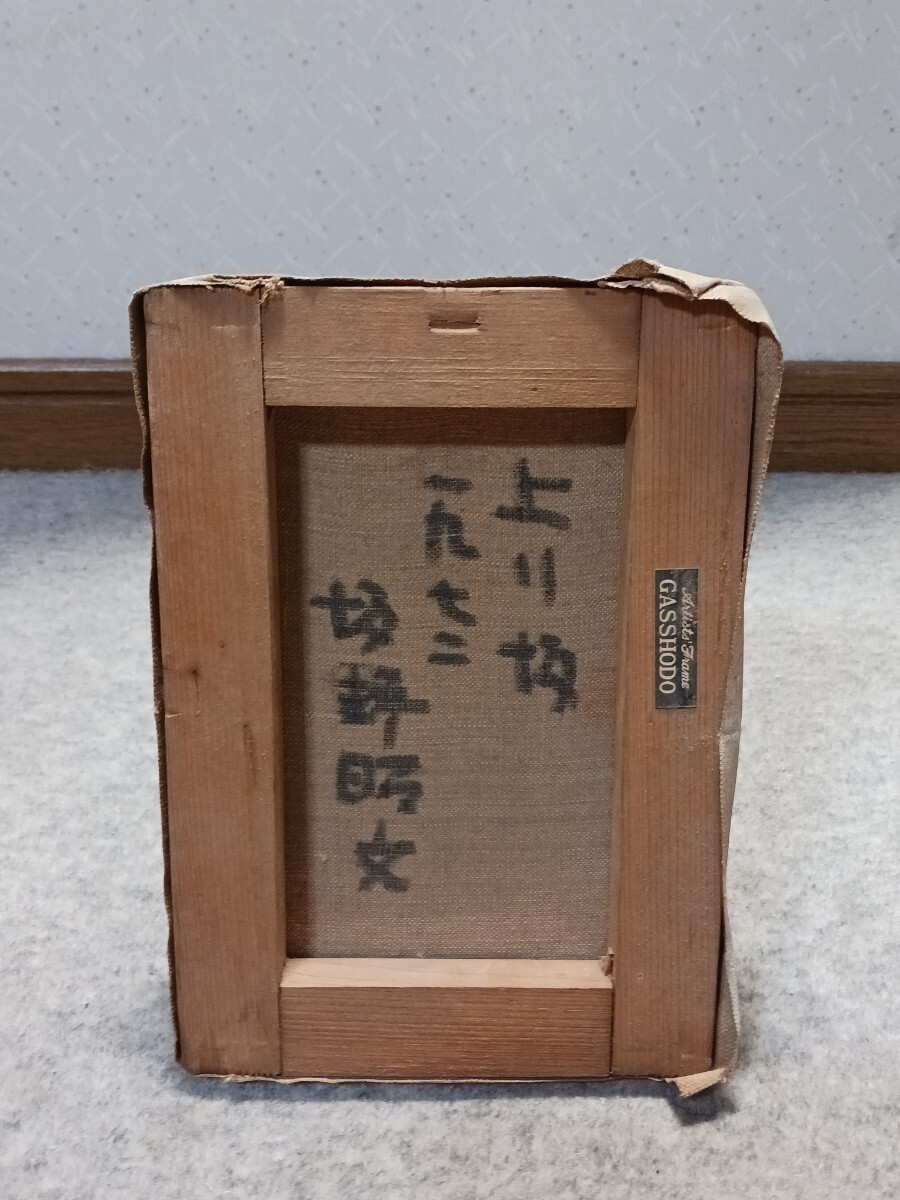 上リ坂
一九七二
昭文
Artists' Frame
GASSHODO